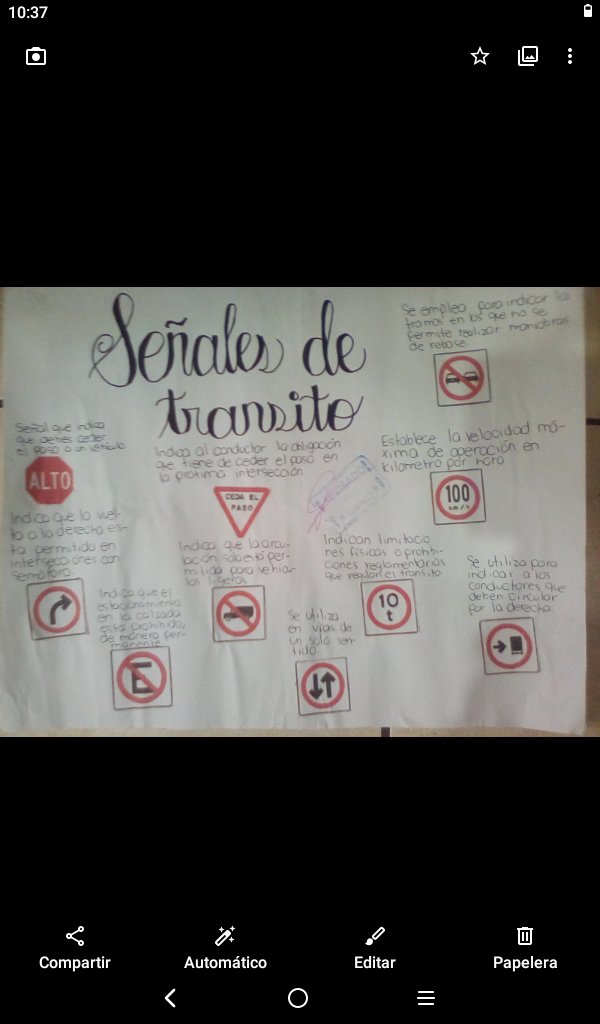 10:37
Señales de
transito
Se empleo para indicar los
tramos en los que no se
permite realizar maniobras
de rebose.
Señal que indica
que debes ceder
el paso a un vehículo
ALTO
Indica al conductor la obligación
que tiene de ceder el paso en
la proxima intersección.
CEDA EL
PASO
Establece la velocidad má-
xima de operación en
kilometro por hora
100
km/h
Indica que la vuel-
ta a la derecha es-
ta permitido en
intersecciones con
Semáforo.
Indica que la circu-
lación solo está per-
mitida para vehicu-
los ligeros
Indican limitacio
nes físicas o prohibi-
ciones reglamentarias
que regulan el transito
10
t
Se utiliza para
indicar a los
conductores que
deben circular
por la derecha.
Indica que el
estacionamiento
en la calzada
está prohibido,
de manera per-
manente
E
Se utiliza
en vias de
un solo sen-
tido.
Compartir
Automático
Editar
Papelera